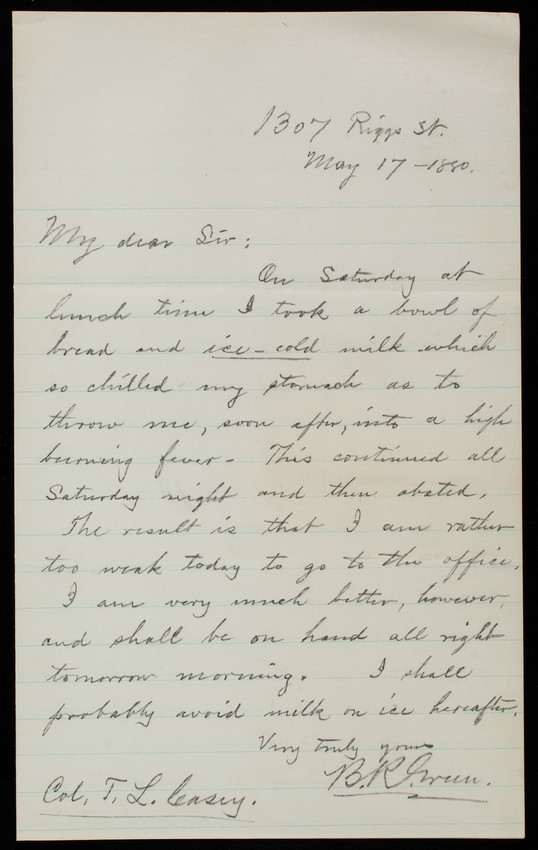 1307 Riggs St.
May 17 - 1880.
My dear Sir:
On Saturday at
lunch time I took a bowl of
bread and ice-cold milk which
so chilled my stomach as to
throw me, soon after, into a high
burning fever - This continued all
Saturday night and then abated.
The result is that I am rather
too weak today to go to the office.
I am very much better, however,
and shall be on hand all right
tomorrow morning. I shall
probably avoid milk on ice hereafter.
Very truly yours
B. R. Green.
Col. T. L. Casey.